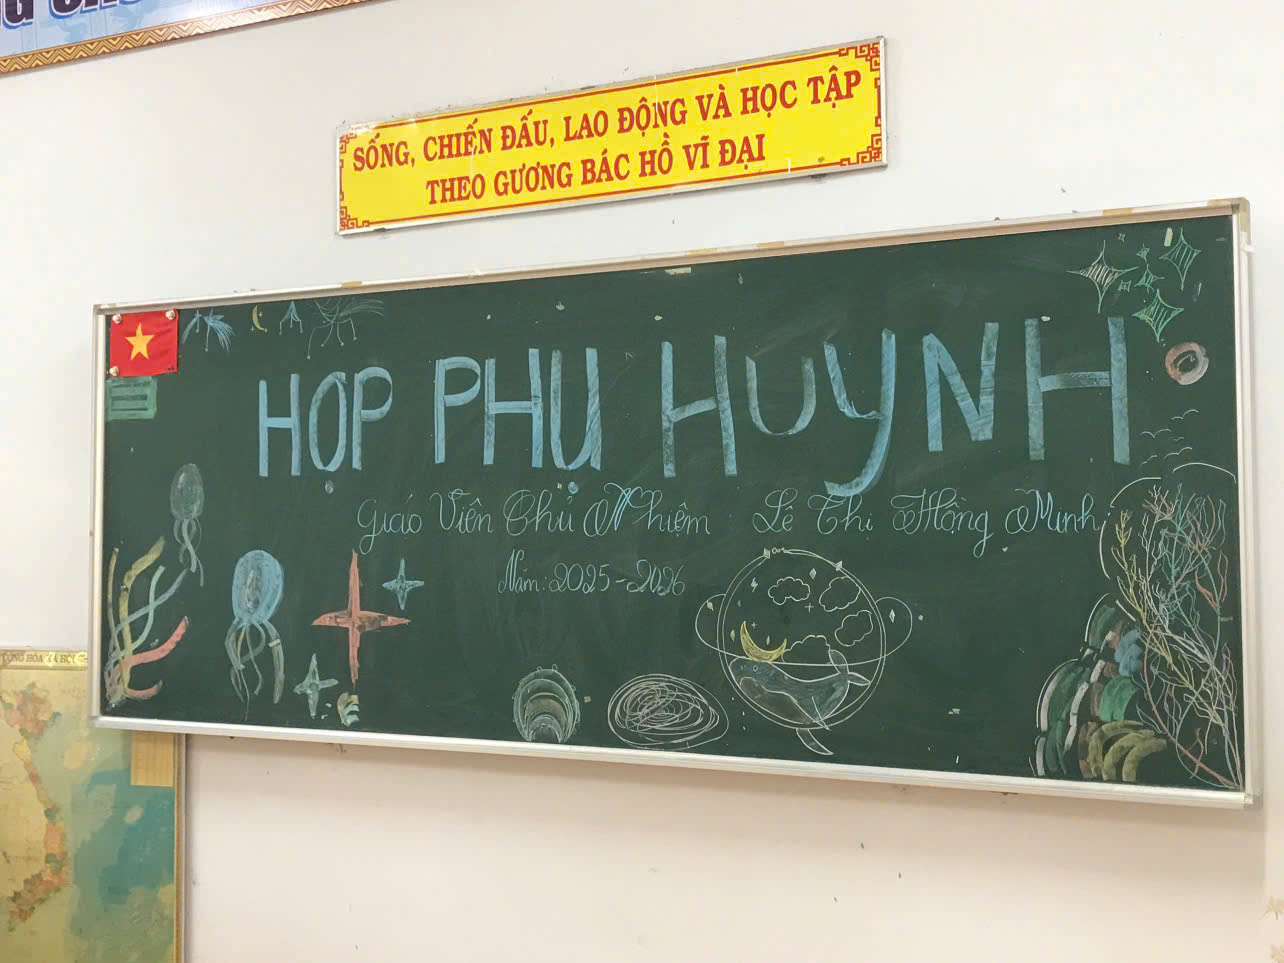 SỐNG, CHIẾN ĐẤU, LAO ĐỘNG VÀ HỌC TẬP
THEO GƯƠNG BÁC HỒ VĨ ĐẠI
HỌP PHỤ HUYNH
Giáo Viên Chủ Nhiệm Lê Thị Hồng Minh
Năm: 2025-2026